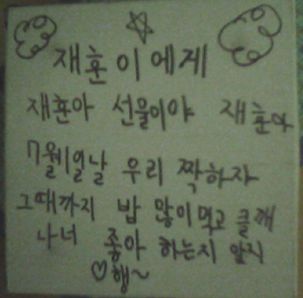 재훈이에게
재훈아 선물이야 재훈아
7월1일날 우리 짝하자
그때까지 밥 많이 먹고 클께
나너 좋아 하는지 알지
♡행~